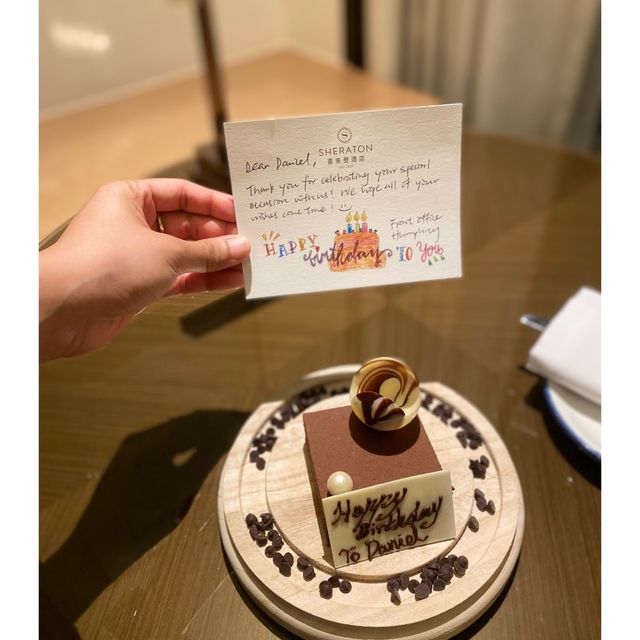 SHERATON
喜來登酒店
Dear Daniel,
Thank you for celebrating your special
occasion with us! We hope all of your
wishes come true!
Front Office
Humphrey
HAPPY birthday TO YOU
Happy
Birthday
To Daniel